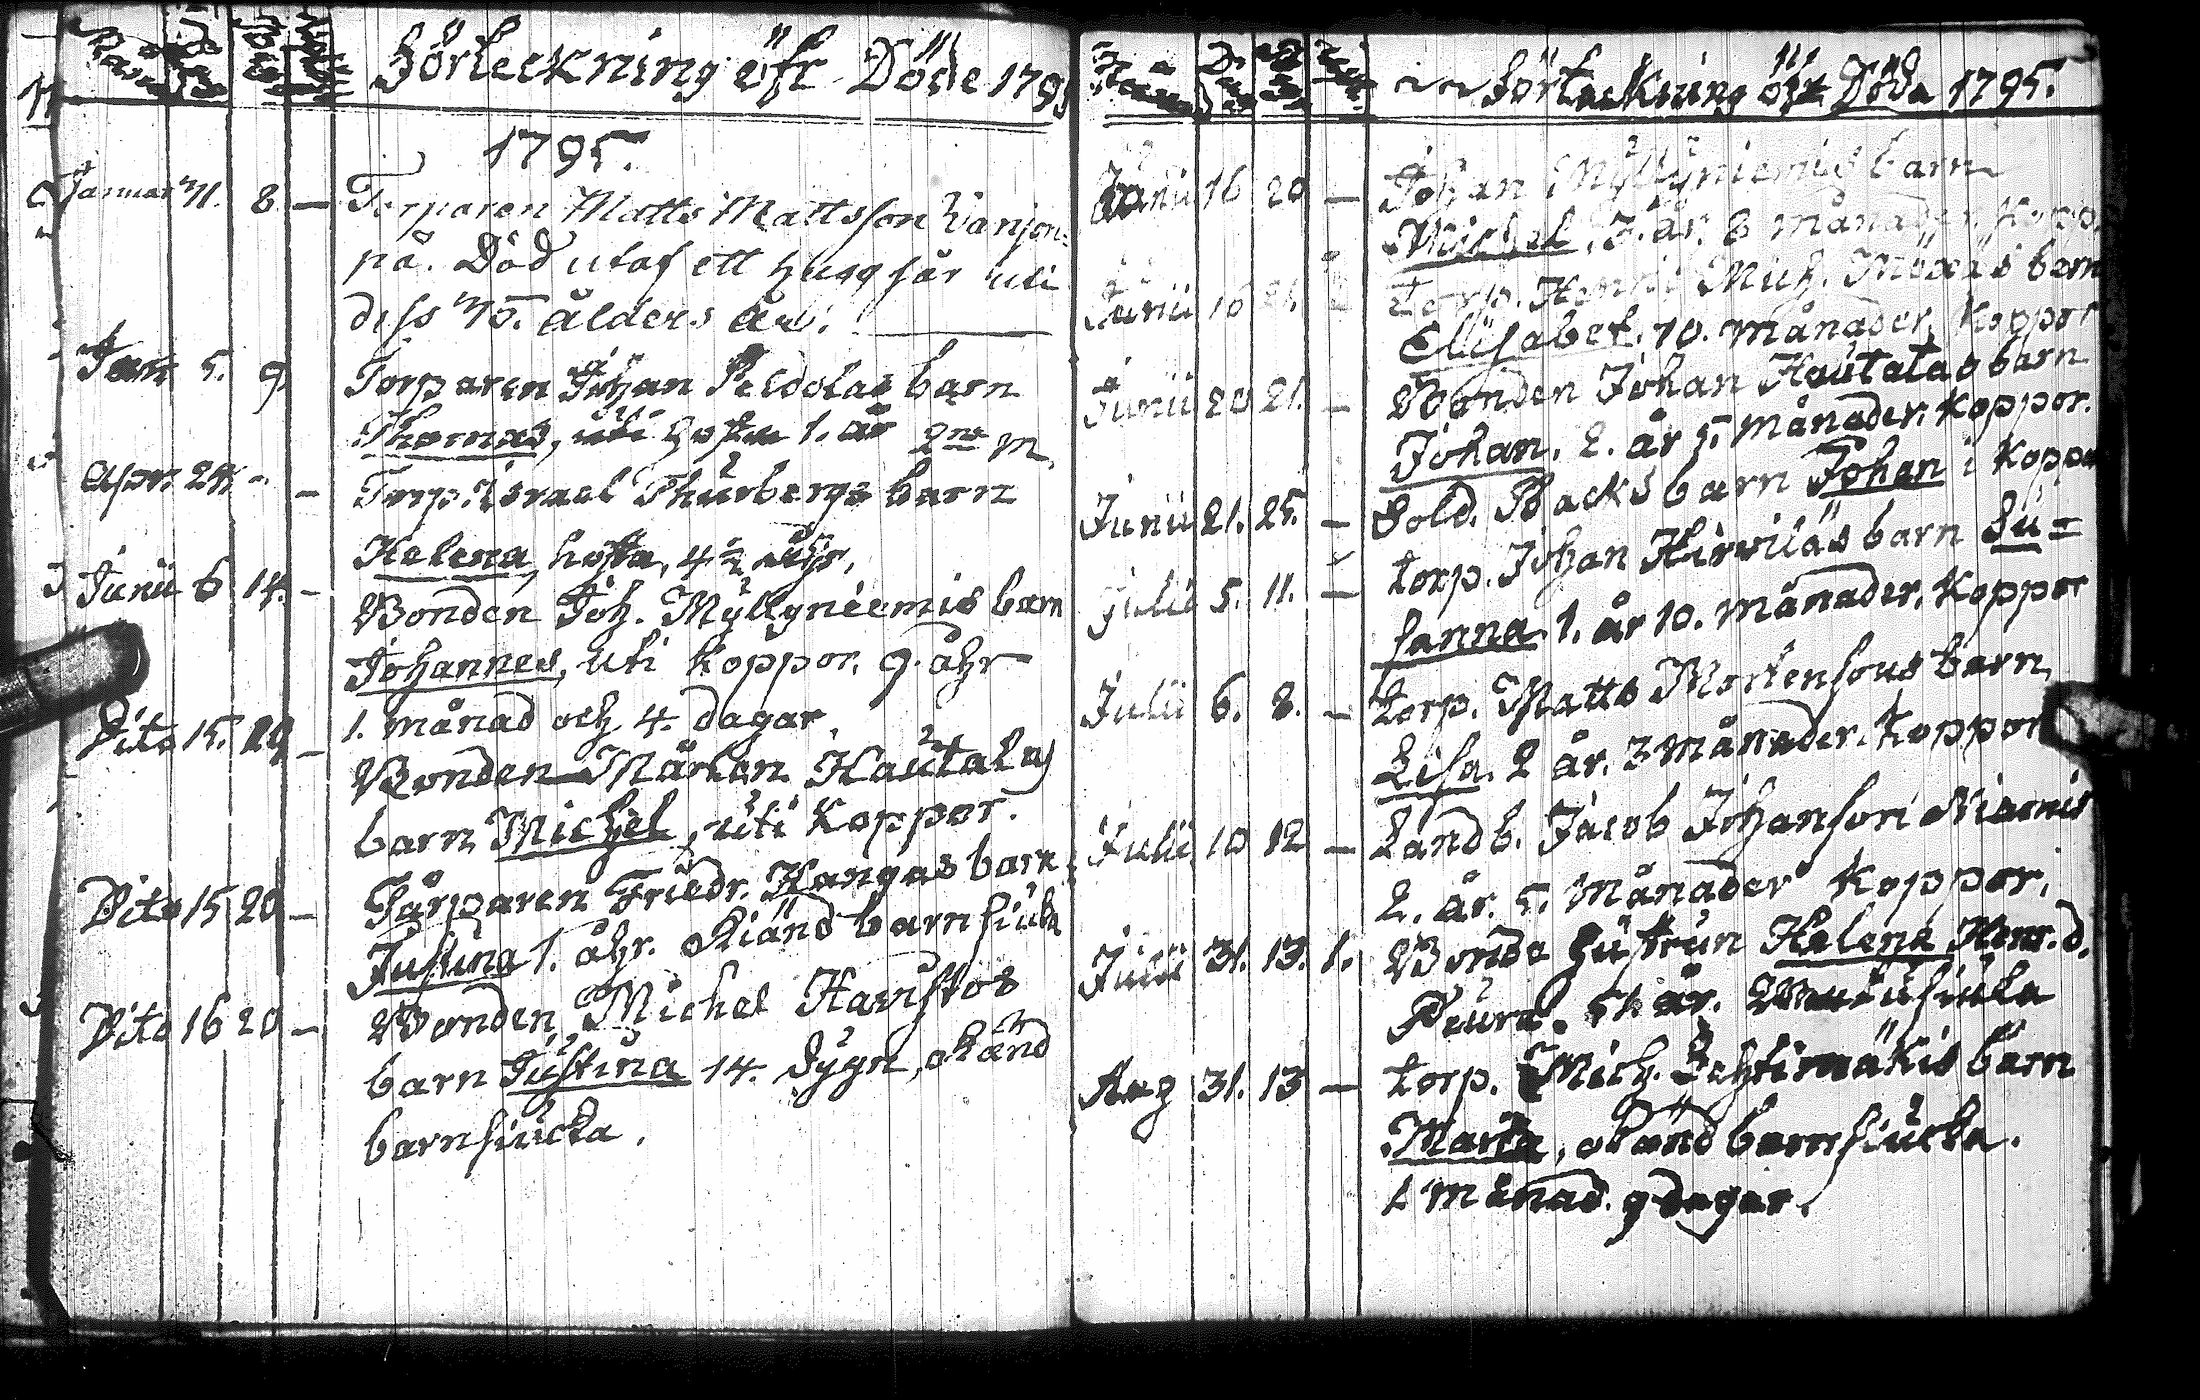 Förteckning öfr Döde 1795
1795.
Januar 1. 8 — Torparen Matts Mattsson
på. Död utaf ett hugg sår uti
dess 75. ålders år.
Jan 5. 9 Torparen Johan Peldolas barn
Thomas, uti hosta 1. år 2ne m.
Apr. 24. - — Torp. Israel Thurbergs barn
Helena, hosta, 4½ åhr.
Junii 6 14. — Bonden Joh. Myllyniemis barn
Johannes, uti koppor. 9. åhr
1. månad och 4. dagar.
Dito 15. 20 — Bonden Mårten Hautalas
barn Michel, uti Koppor.
Dito 15 20 — Tårparen Friedr. Kangas barn
Justina 1. åhr. okiänd barnsiuka
Dito 16 20 — Bonden Michel Havistos
barn Justina 14. dygn, okänd
barnsiucka.
Förteckning öfr Döda 1795.
Junii 16 20 — Johan Myllyniemis barn
Michel. 3. år. 8 månader. Kopp.
Junii 16 21. Torp. Henric Mich. barn
Elisabet. 10. månader, Koppor
Junii 20 21. — Bonden Johan Hautalas barn
Johan. 2. år 5. månader. Koppor.
Junii 21. 25. — Sold. Backs barn Johan i Koppor
Julii 5. 11. — torp. Johan Hirviläs barn Su=
sanna. 1. år 10. månader. Koppor
Julii 6. 8. — torp. Matts Mortensons barn
Lisa. 2 år. 3 månader. Koppor
Julii 10 12 — Landb. Jacob Johanson Niemis
2. år. 5. Månader Koppor.
Julii 31. 13. 1. Bonde hustrun Helena Henr.d.
Peura. 51 år.
Aug 31. 13 — torp. Mich. Lehtimäkis barn
Maria, okänd barnsiucka.
1 månad. 9 dagar.